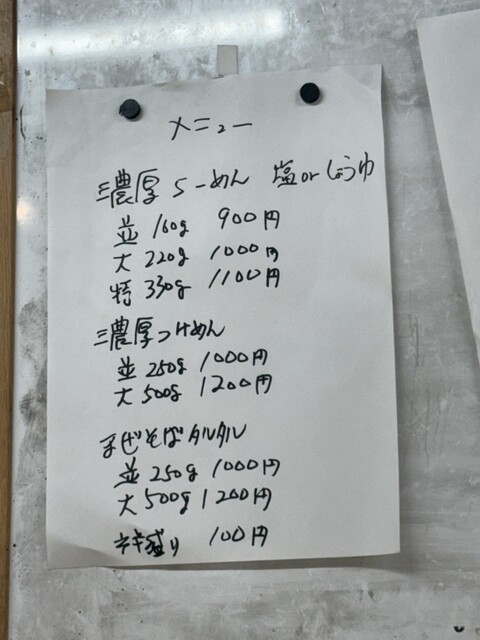 メニュー
濃厚らーめん 塩orしょうゆ
並 160g 900円
大 220g 1000円
特 330g 1100円
濃厚つけめん
並 250g 1000円
大 500g 1200円
まぜそばタルタル
並 250g 1000円
大 500g 1200円
ネギ盛り 100円